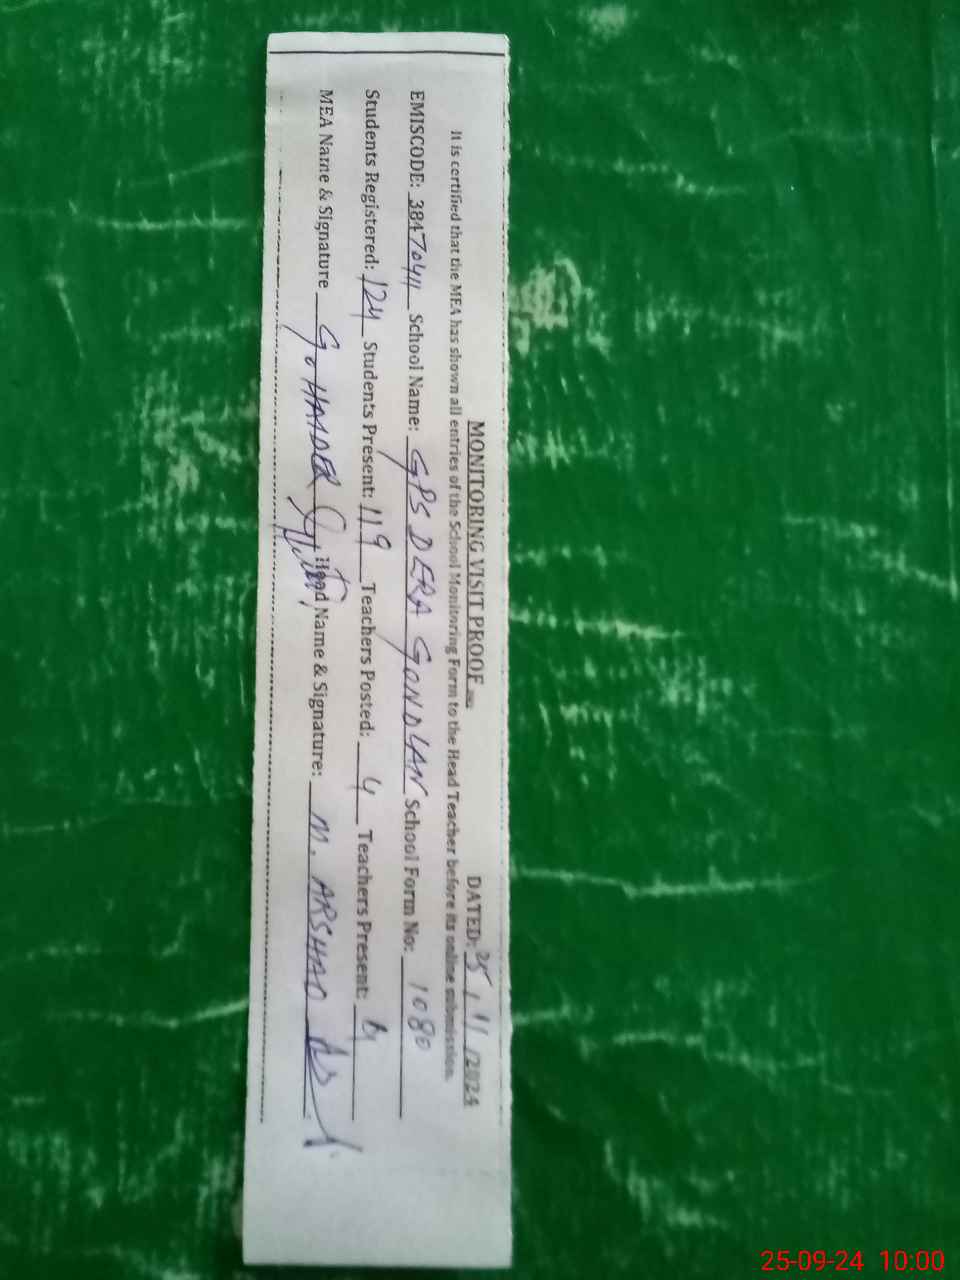 MONITORING VISIT PROOF DATED: 25/11/2024
It is certified that the MEA has shown all entries of the School Monitoring Form to the Head Teacher before its online submission.
EMISCODE: 38470411 School Name: GPS DERA GONDLAN School Form No: 1080
Students Registered: 124 Students Present: 119 Teachers Posted: 4 Teachers Present: 4
MEA Name & Signature G. HAIDER Head Name & Signature: M. ARSHAD
25-09-24 10:00